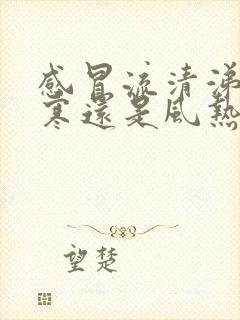 感冒流清涕
寒還是風熱
望楚